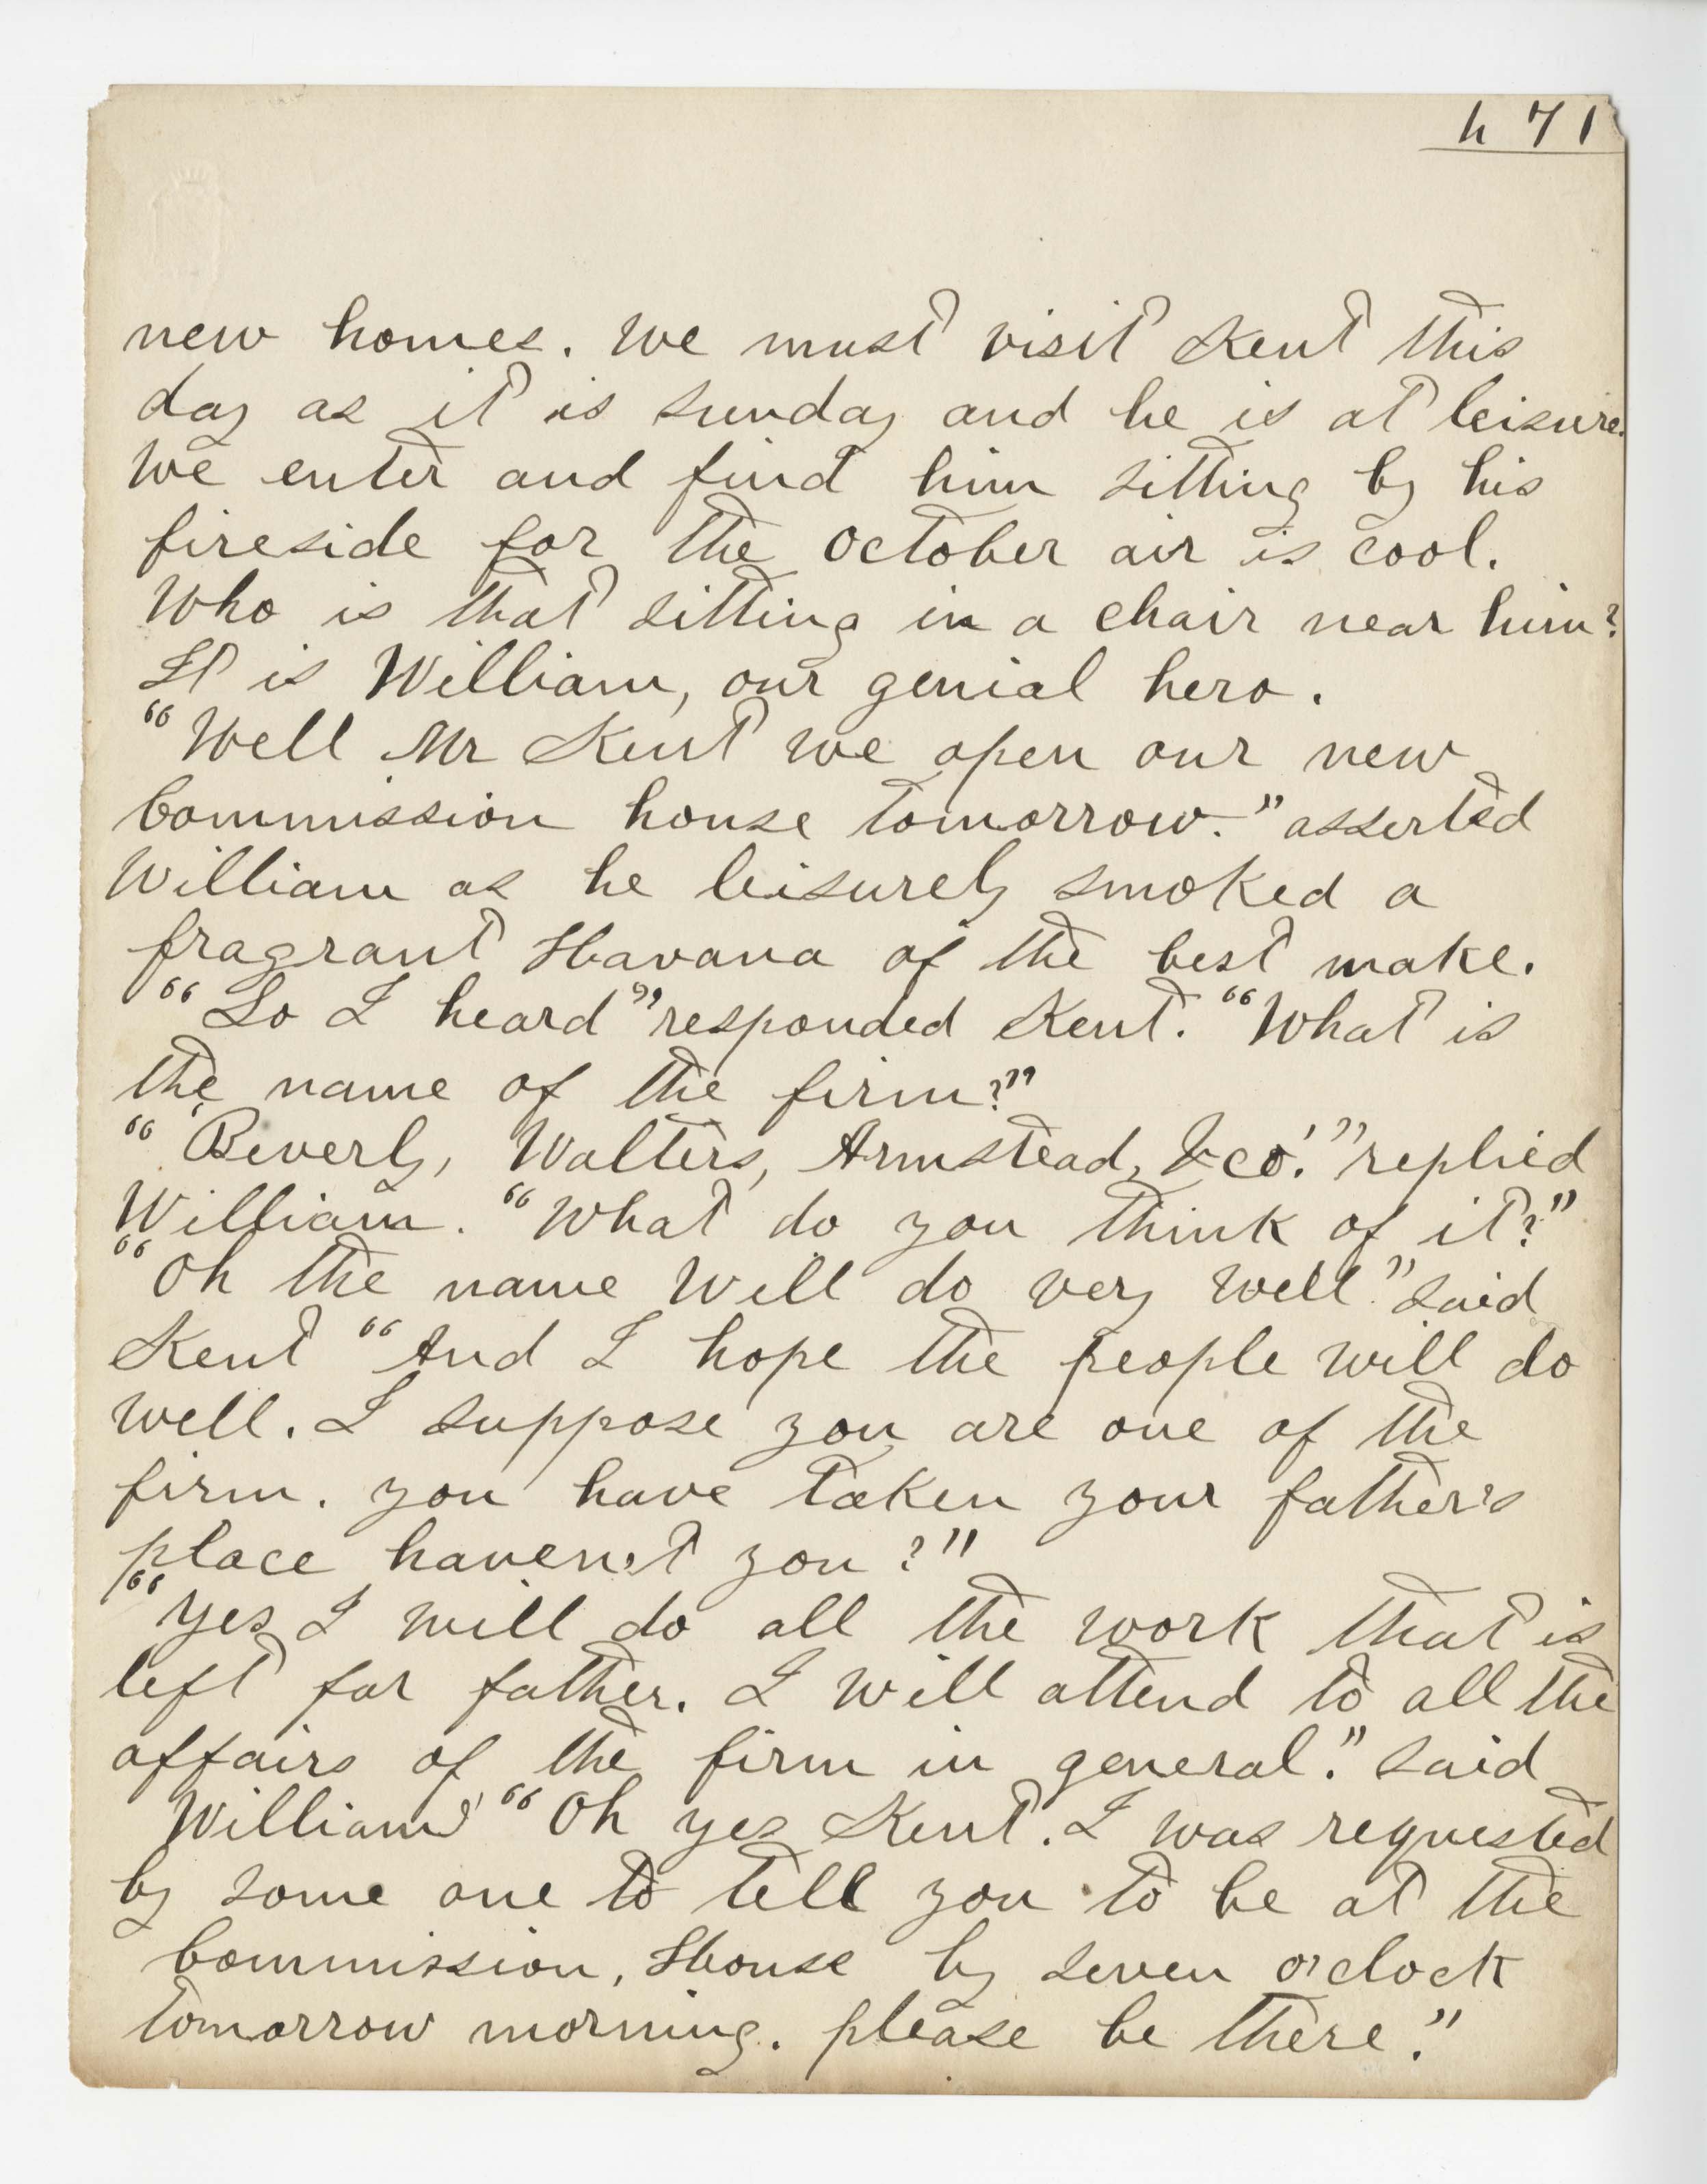 h 71
new homes. We must visit Kent this
day as it is Sunday and he is at leisure.
We enter and find him sitting by his
fireside for the October air is cool.
Who is that sitting in a chair near him?
It is William, our genial hero.
“Well Mr Kent we open our new
Commission house tomorrow.” asserted
William as he leisurely smoked a
fragrant Havana of the best make.
“So I heard” responded Kent. “What is
the name of the firm?”
“Beverly, Walters, Armstead, & co.” replied
William. “What do you think of it?”
“Oh the name will do very well.” said
Kent “And I hope the people will do
well. I suppose you are one of the
firm. you have taken your father's
place haven't you?”
“Yes I will do all the work that is
left for father. I will attend to all the
affairs of the firm in general.” said
William “Oh yes Kent. I was requested
by some one to tell you to be at the
Commission, House by seven o'clock
tomorrow morning. please be there.”